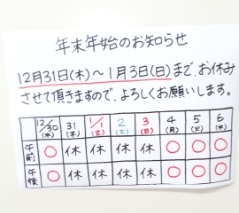 年末年始のお知らせ
12月31日(木)～1月3日(日)まで、お休み
させて頂きますので、よろしくお願いします。
12/30(水) 31(木) 1/1(金) 2(土) 3(日) 4(月) 5(火) 6(水)
午前 ○ 休 休 休 休 ○ ○ ○
午後 ○ 休 休 休 休 ○ ○ ○